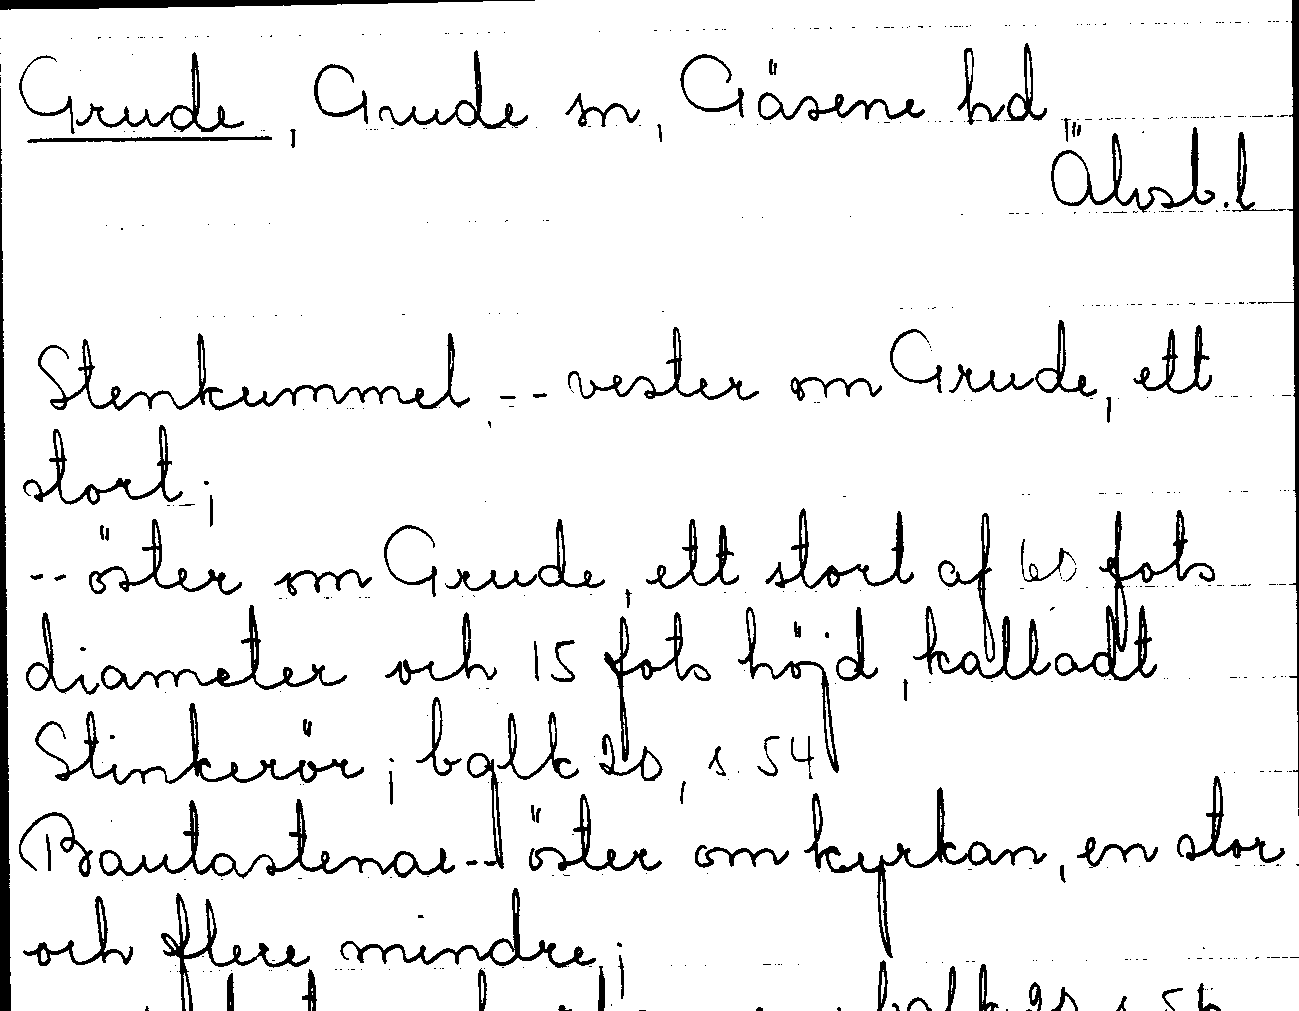 Grude, Grude sn, Gäsene hd
Älvsb.l
Stenkummel -- vester om Grude, ett
stort;
-- öster om Grude, ett stort af 60 fots
diameter och 15 fots höjd, kalladt
Stinkerör; balk 20, s. 54
Bautastenar -- öster om kyrkan, en stor
och flere mindre;
balk 20 s